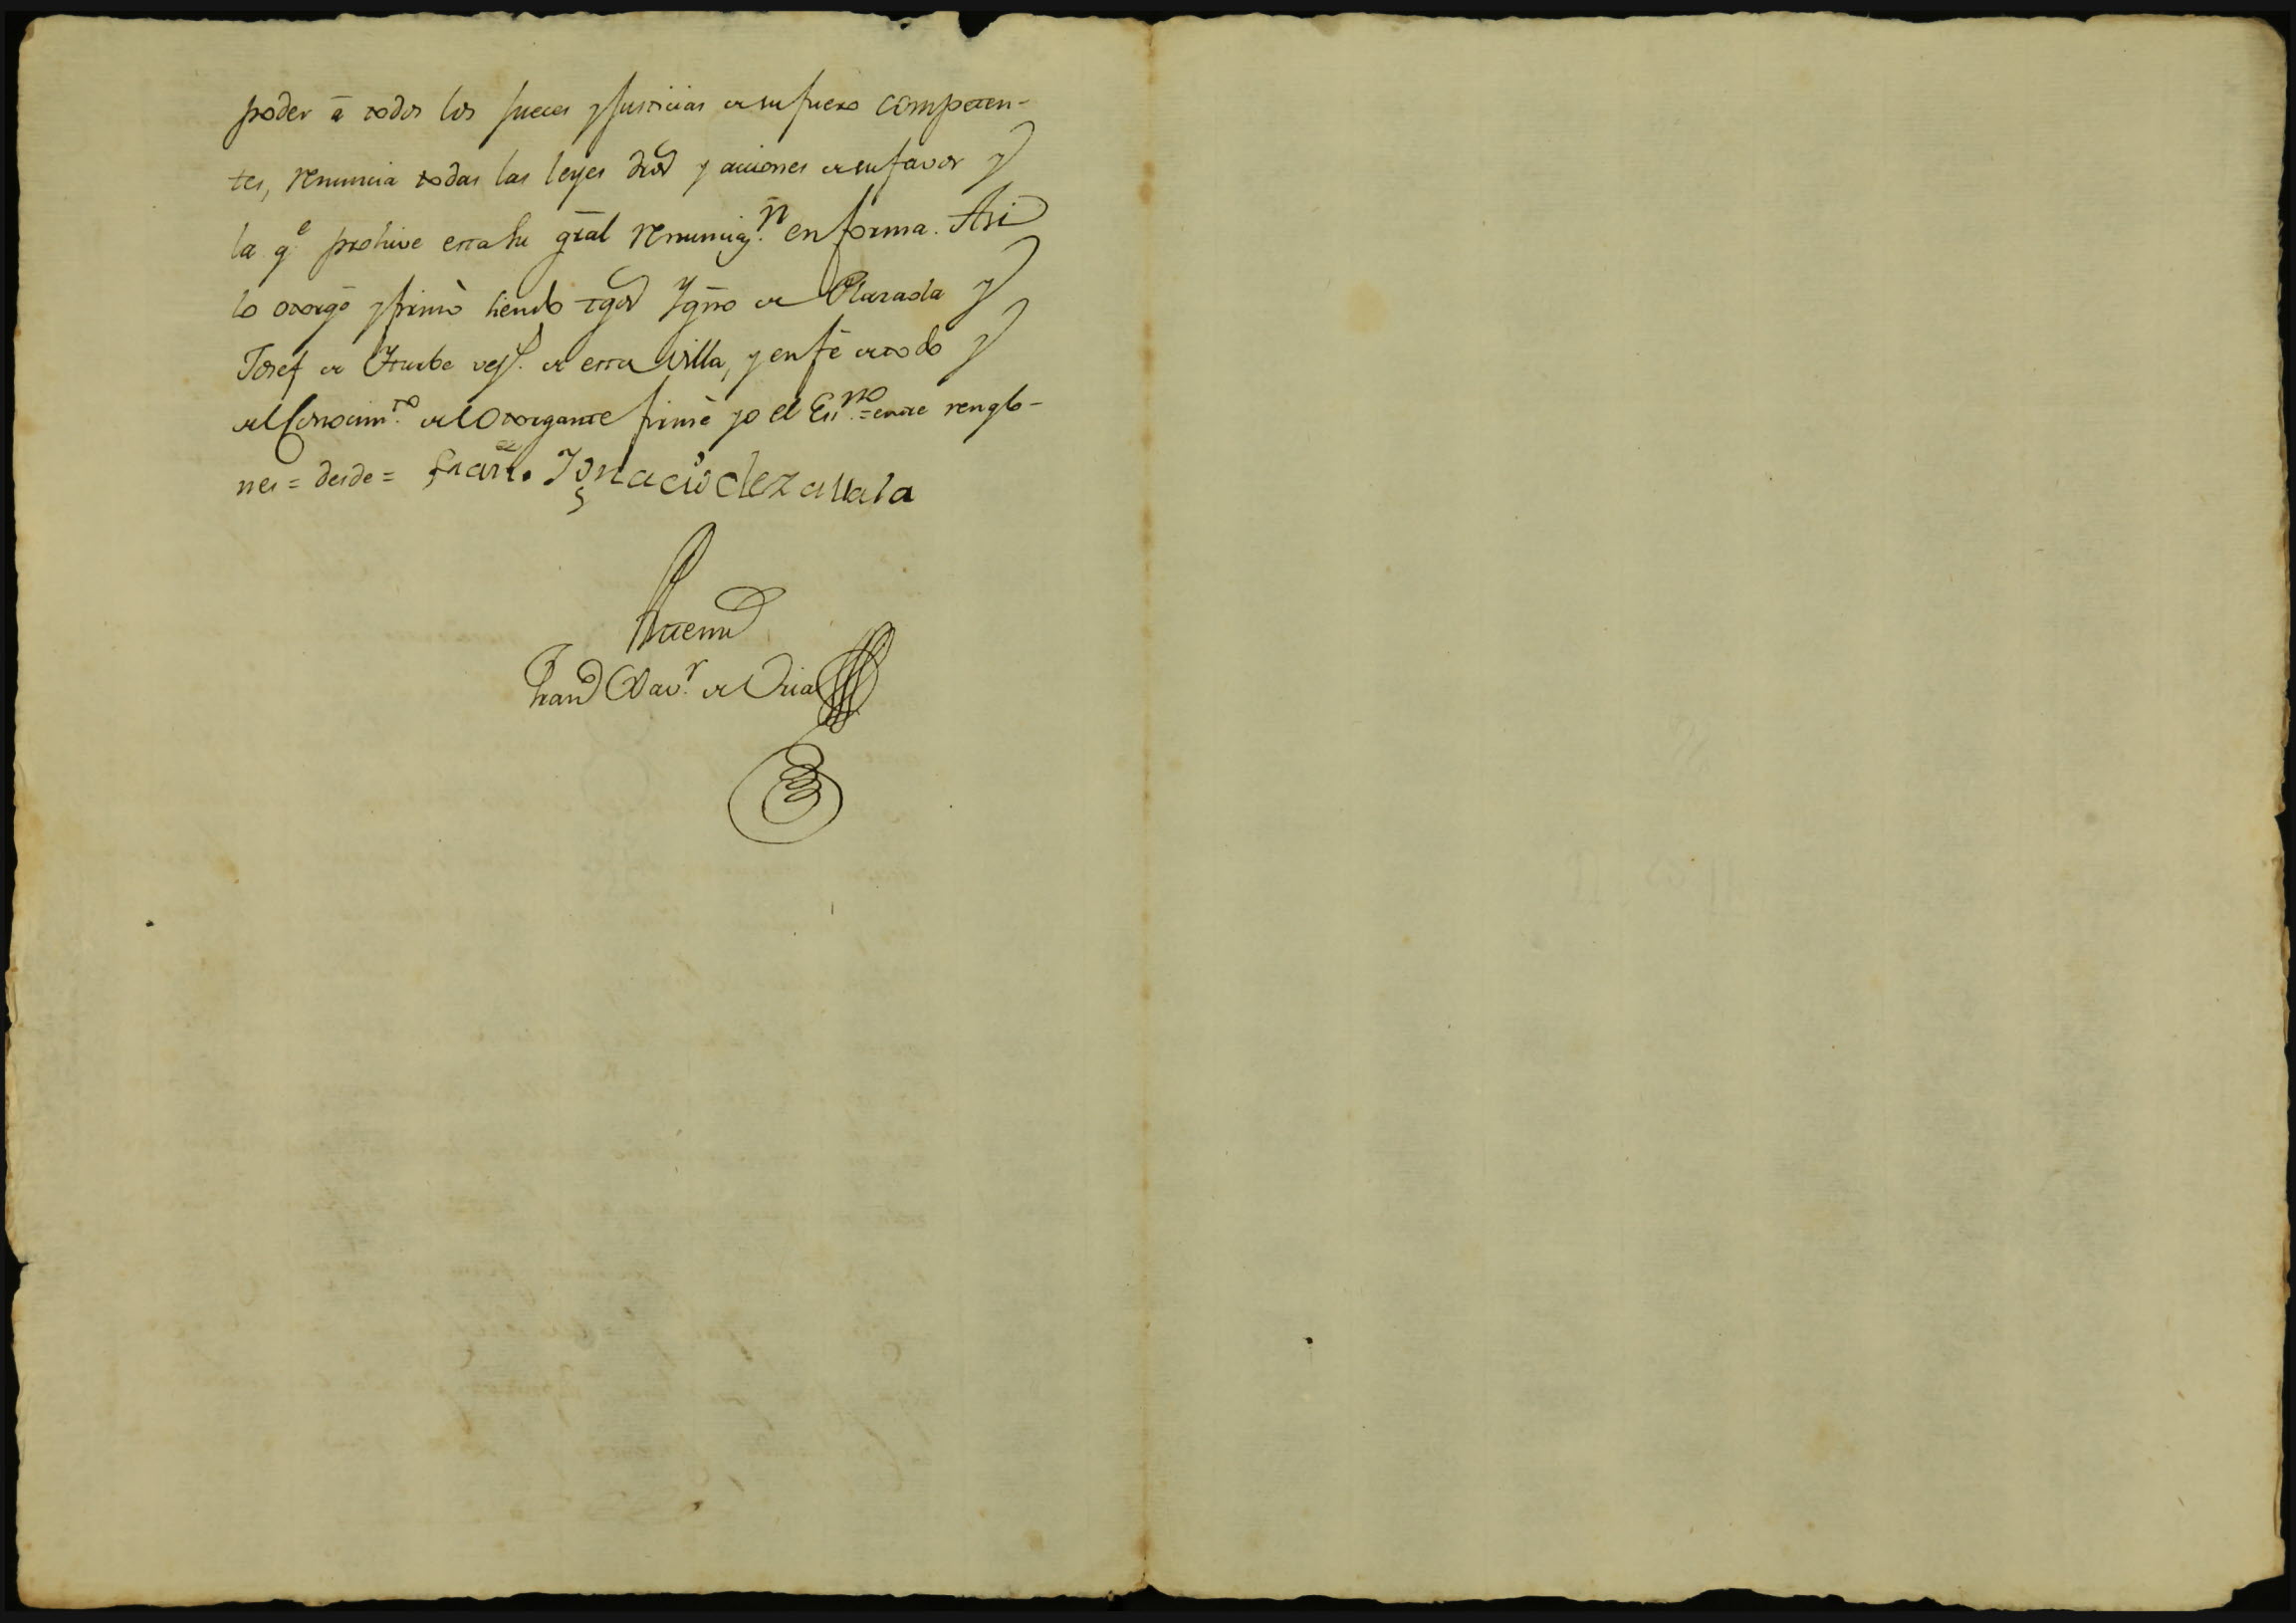 poder â todos los Jueces y Justicias de su fuero competen-
tes, renuncia todas las leyes dros y acciones de su favor y
la q.e prohive esta su gral renunciaz.n en forma. Asi
lo otorgô y firmò siendo tgos Ygno de Olazaola y
Josef de Yturbe vez.s de esta Villa, y en feè de todo y
del Conocim.to del Otorgante firmè yo el Es.no = entre renglo-
nes = desde =
Franco. Ignacio de zavala
Antemi
Fran.co Xav.r de Oria